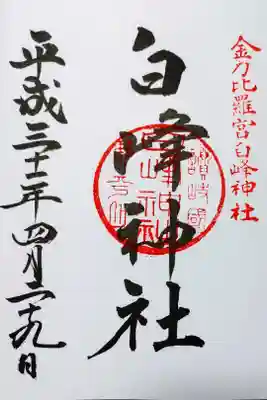 金刀比羅宮白峰神社
白峰神社
讃岐國
平成三十一年四月二十九日